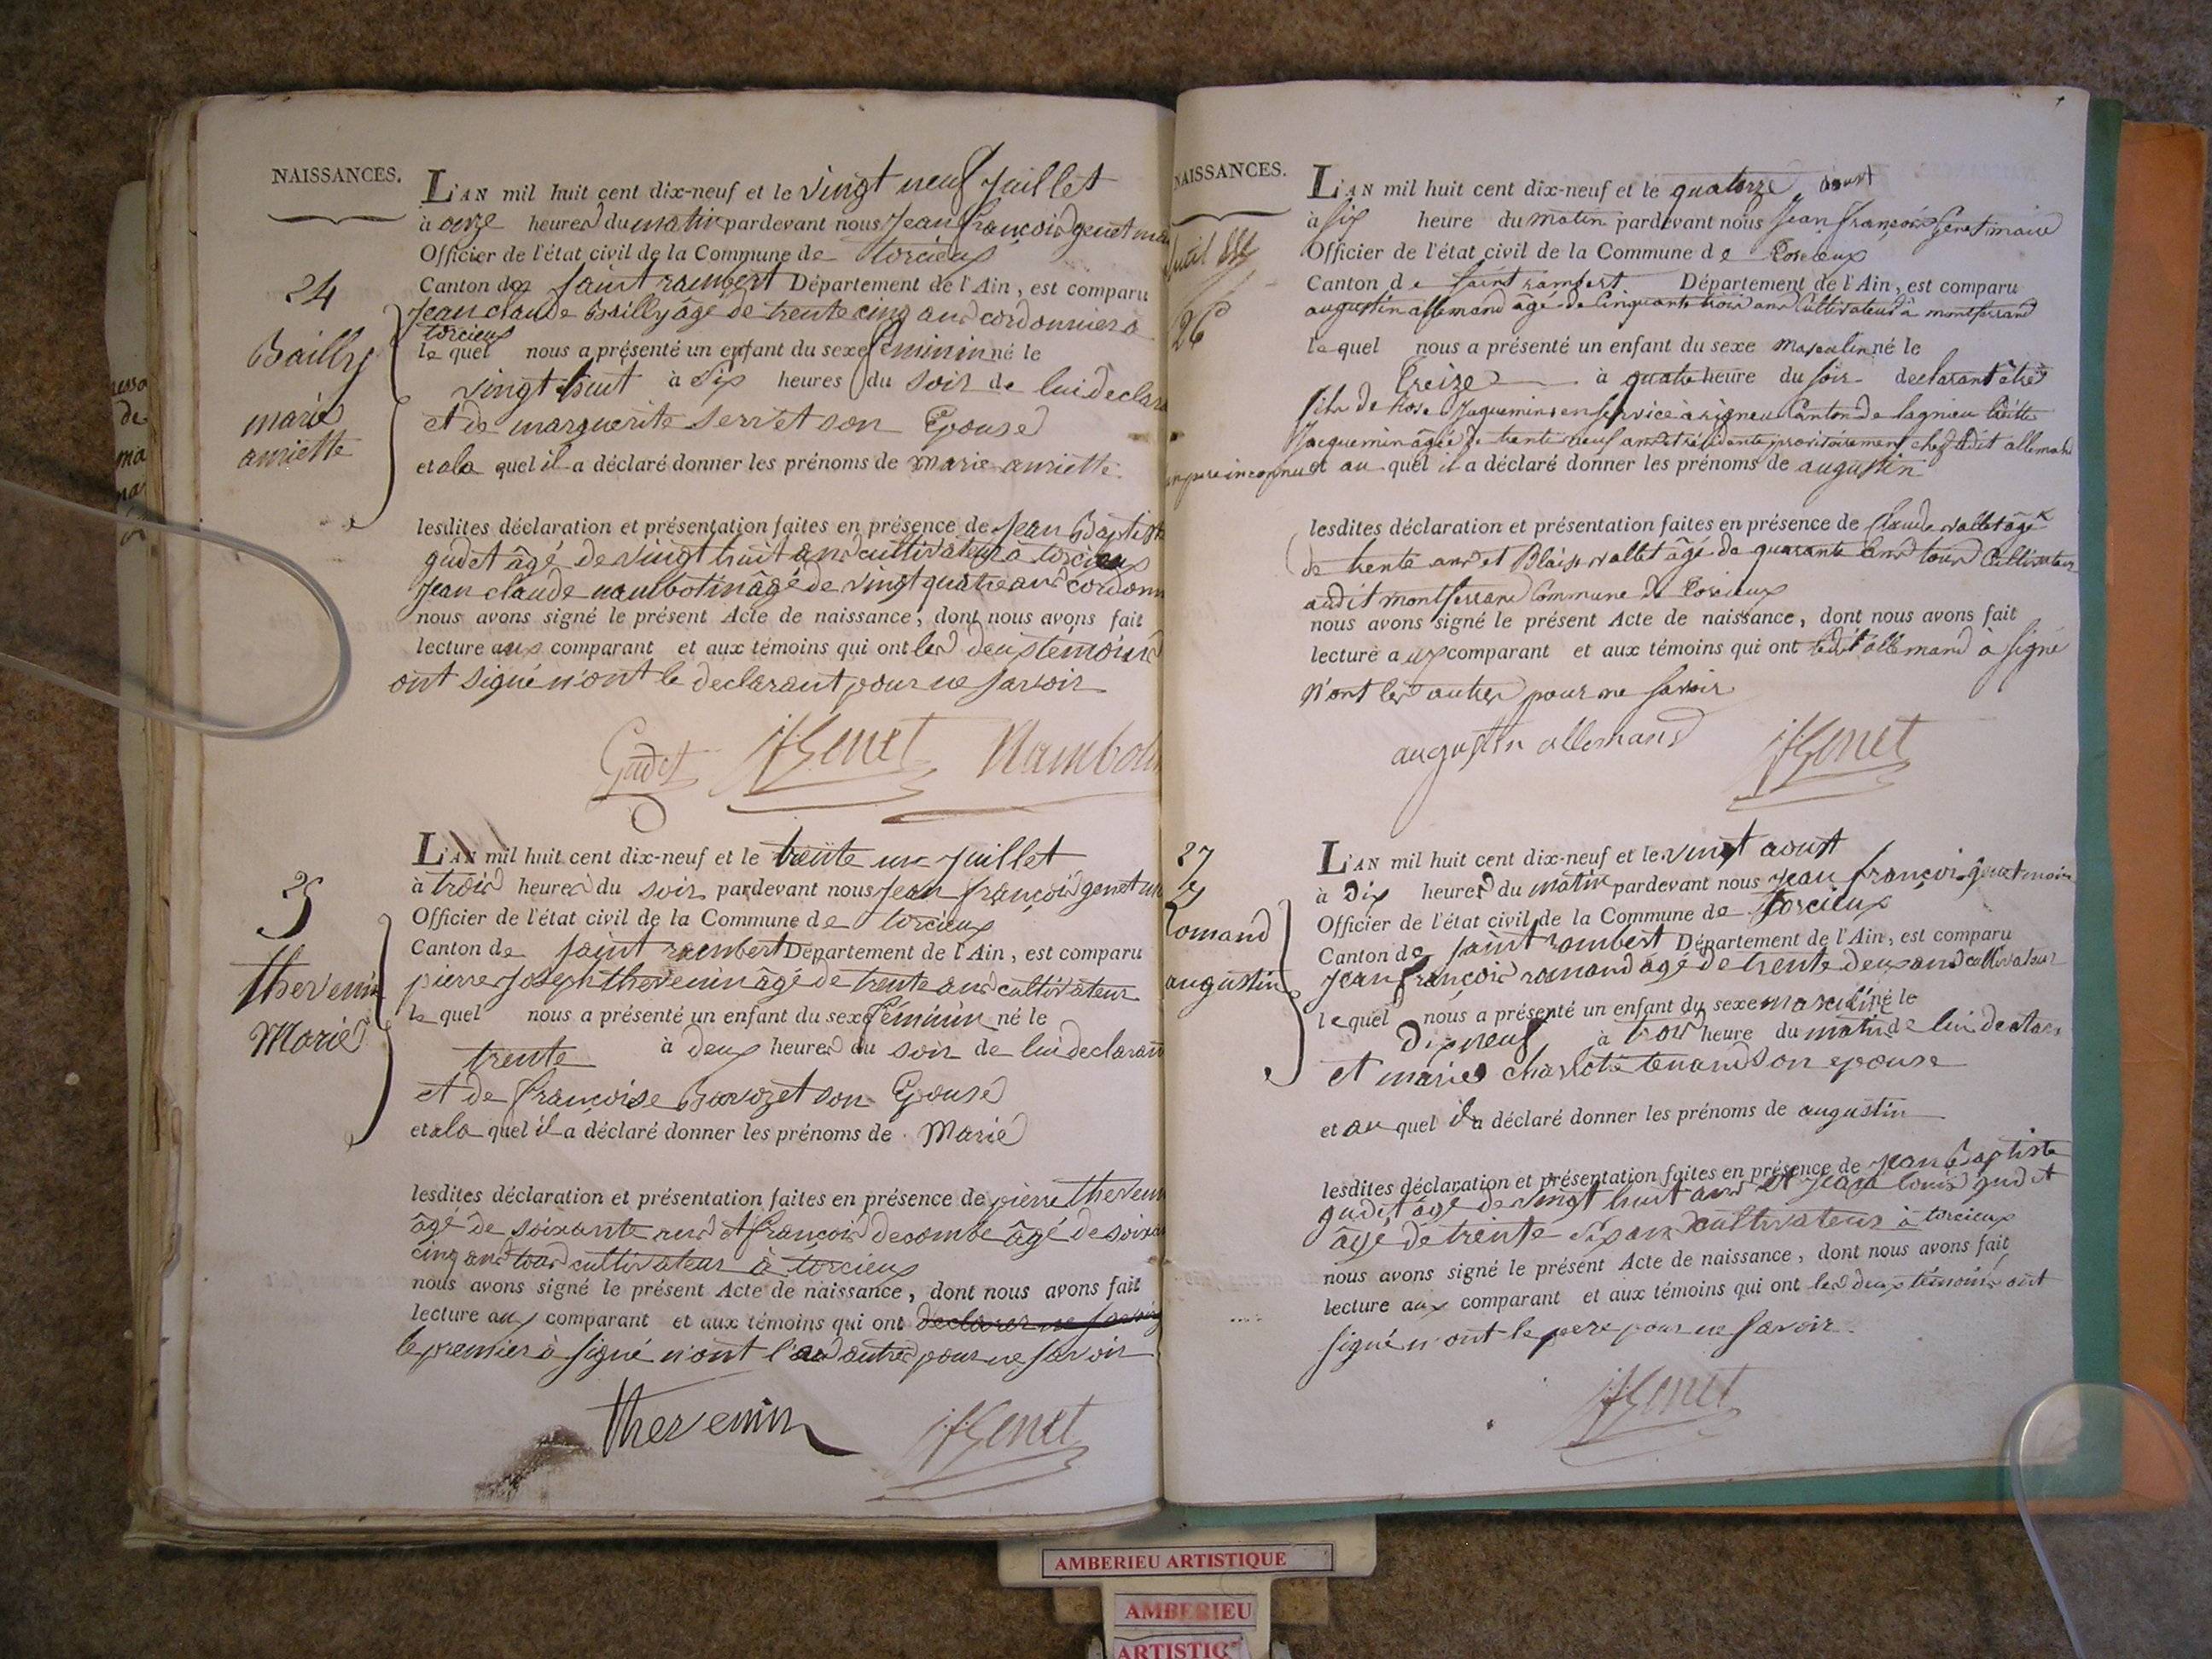 NAISSANCES.
L'AN mil huit cent dix-neuf et le vingt neuf Juillet
à onze heures du matin pardevant nous Jean françois genet
Officier de l'état civil de la Commune de torcieux
24
Canton de saint rambert Département de l'Ain, est comparu
Jean claude Bailly âgé de trente cinq ans cordonnier a
torcieux
Bailly
le quel nous a présenté un enfant du sexe feminin né le
vingt huit à six heures du soir de lui
marie
et de marguerite serret son Epouse
anriette
et a la quel il a déclaré donner les prénoms de Marie anriette
lesdites déclaration et présentation faites en présence de Jean
gudet âgé de vingt huit ans cultivateur à torcieux
Jean claude nambotin âgé de vingt quatre ans
nous avons signé le présent Acte de naissance, dont nous avons fait
lecture aux comparant et aux témoins qui ont les deux témoins
ont signé n'ont le declarant pour ne savoir
Gudet jfGenet
L'AN mil huit cent dix-neuf et le trente un Juillet
à trois heures du soir pardevant nous Jean françois genet
25
Officier de l'état civil de la Commune de torcieux
Canton de saint rambert Département de l'Ain, est comparu
thevenin
pierre Joseph thevenin âgé de trente ans cultivateur
le quel nous a présenté un enfant du sexe féminin né le
Marie
trente à deux heures du soir de lui
et de françoise Bavozet son Epouse
et a la quel il a déclaré donner les prénoms de Marie
lesdites déclaration et présentation faites en présence de pierre
âgé de soixante ans et françois decombe âgé de
cinq ans tous cultivateur à torcieux
nous avons signé le présent Acte de naissance, dont nous avons fait
lecture aux comparant et aux témoins qui ont declarer ne savoir
le premier à signé n'ont les autres pour ne savoir
thevenin jfGenet
NAISSANCES.
L'AN mil huit cent dix-neuf et le quatorze aoust
à six heure du matin pardevant nous Jean françois Genet maire
Officier de l'état civil de la Commune de Torcieux
Canton de saint rambert Département de l'Ain, est comparu
26
augustin allemand âgé de Cinquante trois ans Cultivateur à montferrand
le quel nous a présenté un enfant du sexe masculin né le
treize à quatre heure du soir declarant être
fils de Rose Jaquemin en service à rigneu Canton de lagnieu
Jacquemin âgée de trente neuf ans et résidente chez ledit allemand
père inconnu et au quel il a déclaré donner les prénoms de augustin
lesdites déclaration et présentation faites en présence de Claude vallet âgé
de trente ans et Blaise vallet âgé de quarante ans tous Cultivateur
audit montferrand Commune de Torcieux
nous avons signé le présent Acte de naissance, dont nous avons fait
lecture aux comparant et aux témoins qui ont ledit allemand à signé
n'ont les autres pour ne savoir
augustin allemand jfGenet
27
L'AN mil huit cent dix-neuf et le vingt aoust
à dix heures du matin pardevant nous Jean françois genet maire
Officier de l'état civil de la Commune de torcieux
Romand
Canton de saint rambert Département de l'Ain, est comparu
augustin
Jean françois romand âgé de trente deux ans cultivateur
lequel nous a présenté un enfant du sexe masculin né le
dix neuf à trois heure du matin de lui
et marie charlotte tenand son epouse
et au quel il a déclaré donner les prénoms de augustin
lesdites déclaration et présentation faites en présence de Jean Baptiste
gudet âgé de vingt huit ans et Jean louis gudet
âgé de trente six ans cultivateur à torcieux
nous avons signé le présent Acte de naissance, dont nous avons fait
lecture aux comparant et aux témoins qui ont les deux témoins ont
signé n'ont le pere pour ne savoir
jfGenet
AMBERIEU ARTISTIQUE
AMBERIEU